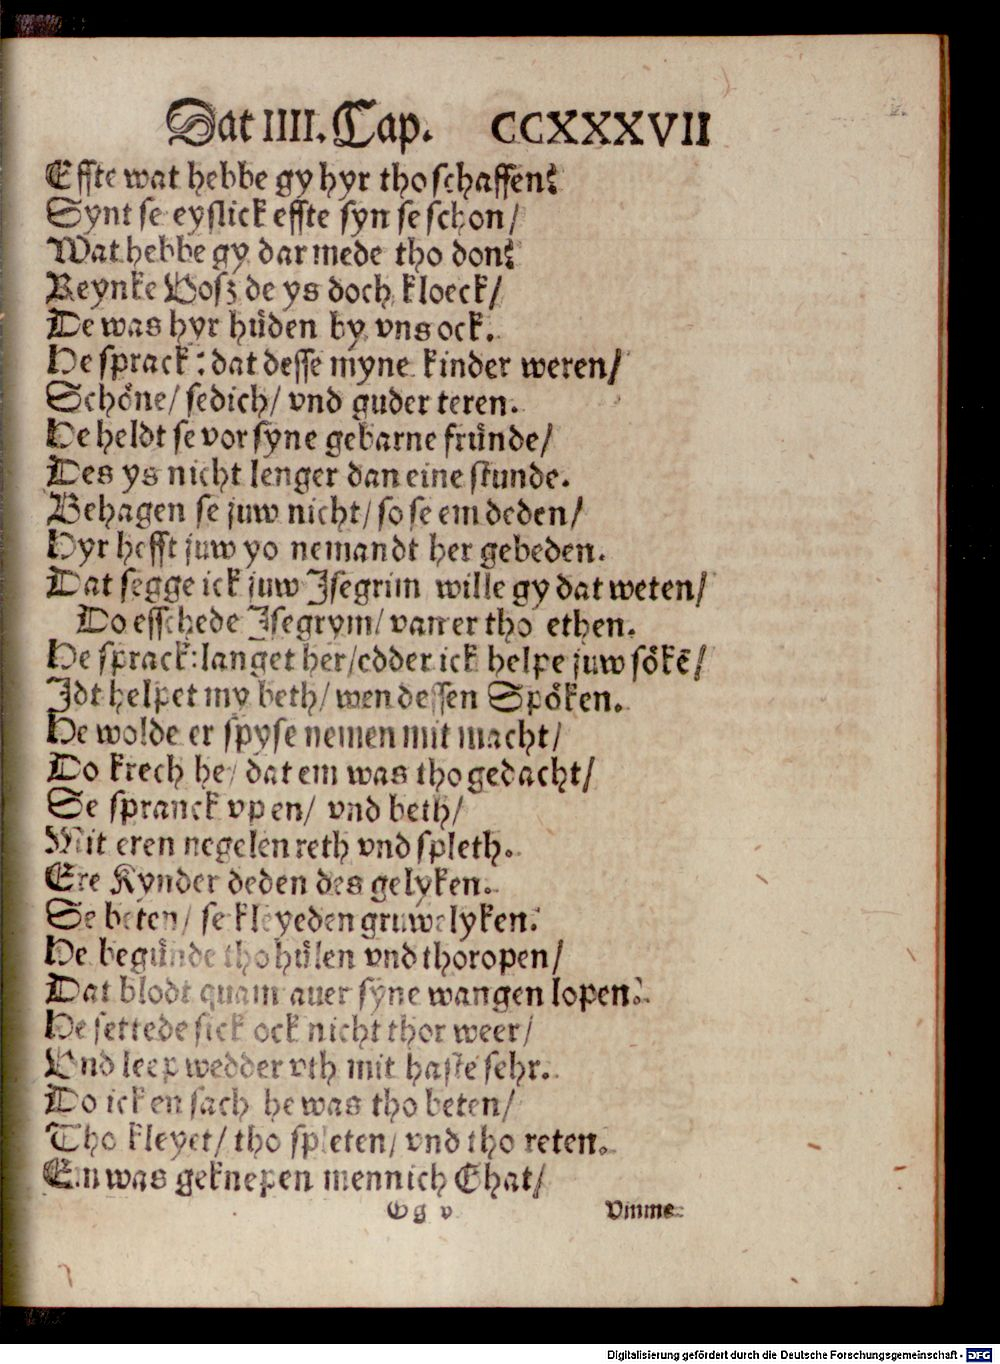 Dat IIII. Cap. CCXXXVII
Effte wat hebbe gy hyr tho schaffen?
Synt se eyslick effte syn se schon/
Wat hebbe gy dar mede tho don?
Reynke Vosz de ys doch kloeck/
De was hyr hůden by vns ock.
He sprack: dat desse myne kinder weren/
Schöne/ sedich/ vnd guder teren.
He heldt se vor syne gebarne frůnde/
Des ys nicht lenger dan eine stunde.
Behagen se juw nicht/ so se em deden/
Hyr hefft juw yo nemandt her gebeden.
Dat segge ick juw Jsegrim wille gy dat weten/
Do esschede Jsegrym/ van er tho ethen.
He sprack: langet her/ edder ick helpe juw sökē/
Jdt helpet my beth/ wen dessen Spöken.
He wolde er spyse nemen mit macht/
Do krech he/ dat em was tho gedacht/
Se spranck vp en/ vnd beth/
Mit eren negelen reth vnd spleth.
Ere Kynder deden des gelyken.
Se beten/ se kleyeden gruwelyken.
He begůnde tho hůlen vnd tho ropen/
Dat blodt quam auer syne wangen lopen.
He settede sick ock nicht thor weer/
Vnd leep wedder vth mit haste sehr.
Do ick en sach he was tho beten/
Tho kleyet/ tho spleten/ vnd tho reten.
Em was geknepen mennich Ghat/
Gg v Vmme
Digitalisierung gefördert durch die Deutsche Forschungsgemeinschaft - DFG